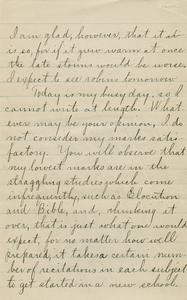 I am glad, however, that it it
is so, for if it grew warm at once
the late storms would be worse.
I expect to see robins tomorrow
Today is my busy day, so I
cannot write at length. What
ever may be your opinion, I do
not consider my marks satis-
factory. You will observe that
my lowest marks are in the
straggling studies which come
infrequently, such as Elocution
and Bible, and, thinking it
over, that is just what one would
expect, for no matter how well
prepared, it takes a certain num-
ber of recitations in each subject
to get started in a new school.